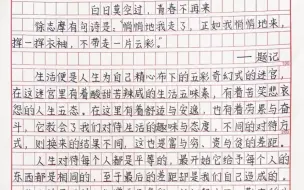 白日莫空过，青春不再来
徐志摩有句诗是："悄悄地我走了，正如我悄悄地来，
挥一挥衣袖，不带走一片云彩。"
——题记
生活便是人生为自己精心布下的五彩奇幻式的迷宫，
在这迷宫里有着酸甜苦辣咸的生活五味素，有着苦笑悲哀
怨的人生五态。在这里有着舒适与安逸，也有着劳累与奋
斗。它教会了我们对待生活的趣味与态度，不同的对待方
式，则换来的结果不同，这也是富与穷、贵与贫的差距。
人生对待每个人都是平等的，最开始它给予每个人的
东西都是相同的，至于最后的差距都是我们自己造成的。